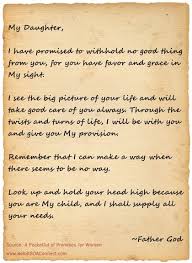 My Daughter,
I have promised to withhold no good thing
from you, for you have favor and grace in
My sight.
I see the big picture of your life and will
take good care of you always. Through the
twists and turns of life, I will be with you
and give you My provision.
Remember that I can make a way when
there seems to be no way.
Look up and hold your head high because
you are My child, and I shall supply all
your needs.
~Father God
Source: A Pocketful of Promises for Women